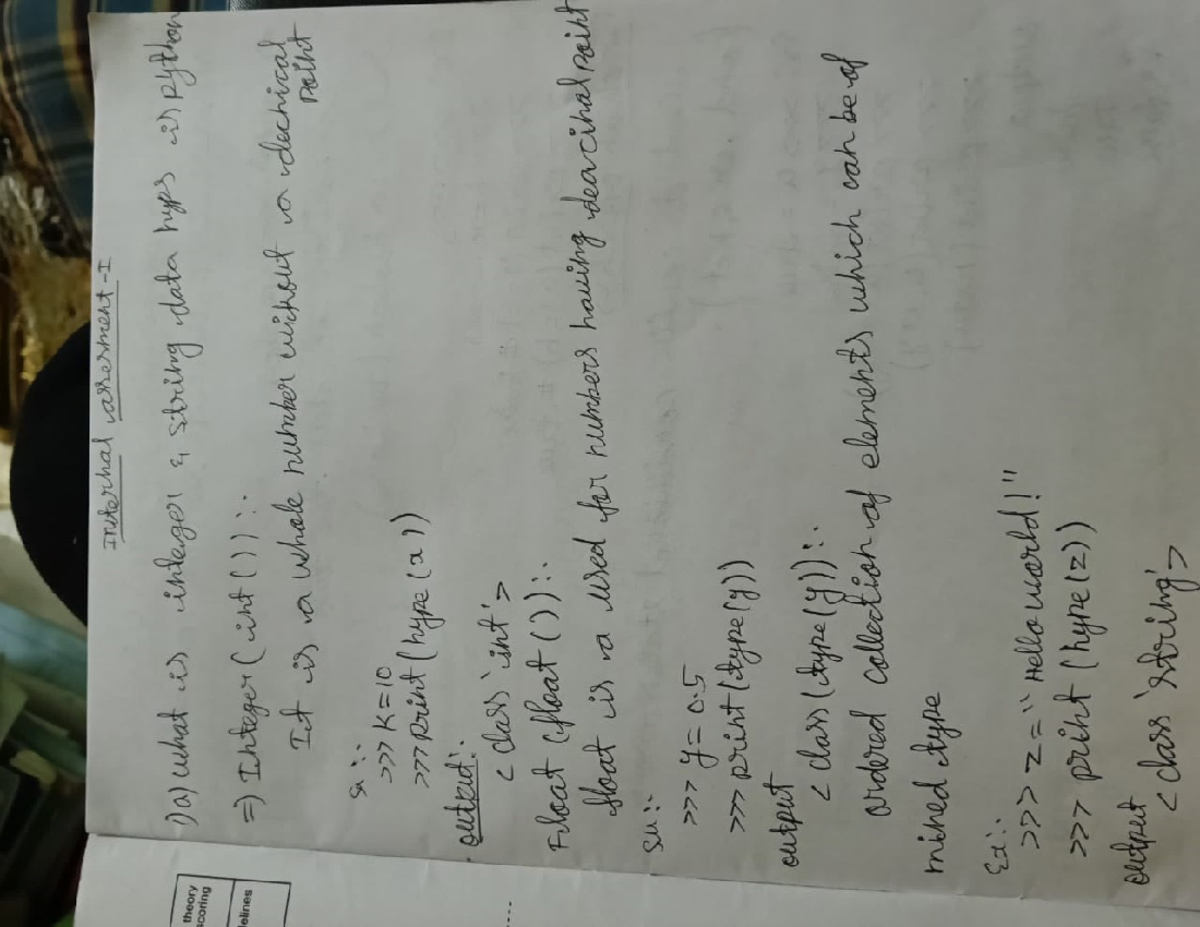 Internal assesment-I
1)a) What is integer & string data hyps is python
=) Integer (int ()) :.
It is a whole number without a dechical
Point
>>> K=10
>>> Print (hype (a))
output:.
< class 'int'>
Float (float ()) :.
float is a used for numbers having deacihal Point
>>> y = 0.5
>>> print (type (y))
output
< class (type (y)) :
ordered collection of elements which can be of
mihed type
Ex:.
>>> z = "Hello world!"
>>> print (hype (z))
output
< class 'string'>
theory
scoring
delines